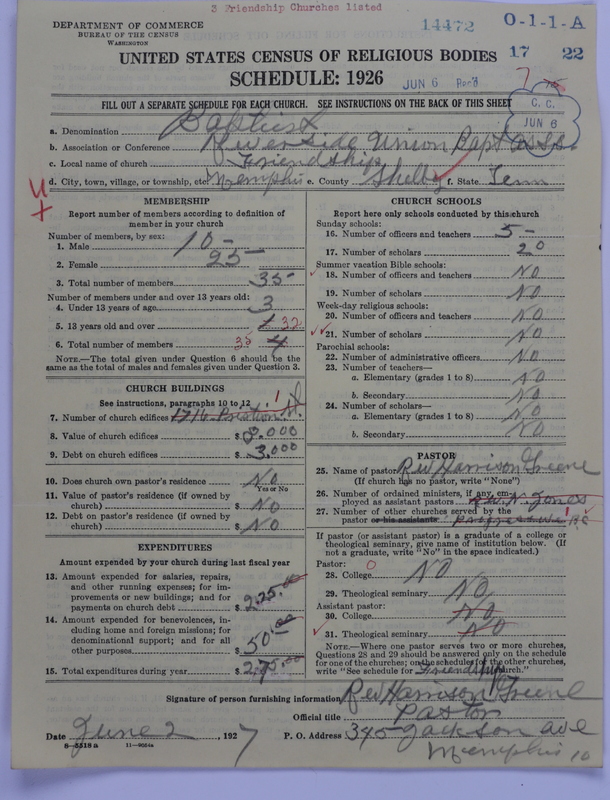 3 Friendship Churches listed
DEPARTMENT OF COMMERCE
BUREAU OF THE CENSUS
WASHINGTON
14472 O-1-1-A
UNITED STATES CENSUS OF RELIGIOUS BODIES 17 22
SCHEDULE: 1926
JUN 6 Rec'd 7
FILL OUT A SEPARATE SCHEDULE FOR EACH CHURCH. SEE INSTRUCTIONS ON THE BACK OF THIS SHEET
C. C.
JUN 6
a. Denomination Baptist
b. Association or Conference Riverside Union Bapt Ass
c. Local name of church Friendship
d. City, town, village, or township, etc. Memphis e. County Shelby f. State Tenn
MEMBERSHIP
Report number of members according to definition of
member in your church
Number of members, by sex:
1. Male 10-
2. Female 25-
3. Total number of members 35-
Number of members under and over 13 years old:
4. Under 13 years of age 3
5. 13 years old and over 1 32
6. Total number of members 35 4
NOTE.—The total given under Question 6 should be the
same as the total of males and females given under Question 3.
CHURCH BUILDINGS
See instructions, paragraphs 10 to 12
7. Number of church edifices 1716 St. 1
8. Value of church edifices $ 8.000
9. Debt on church edifices $ 3.000
10. Does church own pastor's residence? No
Yes or No
11. Value of pastor's residence (if owned by
church) $ No
12. Debt on pastor's residence (if owned by
church) $ No
EXPENDITURES
Amount expended by your church during last fiscal year
13. Amount expended for salaries, repairs,
and other running expenses; for im-
provements or new buildings; and for
payments on church debt $ 225.00
14. Amount expended for benevolences, in-
cluding home and foreign missions; for
denominational support; and for all
other purposes $ 50.00
15. Total expenditures during year $ 275.00
CHURCH SCHOOLS
Report here only schools conducted by this church
Sunday schools:
16. Number of officers and teachers 5-
17. Number of scholars 20
Summer vacation Bible schools:
18. Number of officers and teachers No
19. Number of scholars No
Week-day religious schools:
20. Number of officers and teachers No
21. Number of scholars No
Parochial schools:
22. Number of administrative officers No
23. Number of teachers—
a. Elementary (grades 1 to 8) No
b. Secondary No
24. Number of scholars—
a. Elementary (grades 1 to 8) No
b. Secondary No
PASTOR
25. Name of pastor Rev Harrison Greene
(If church has no pastor, write "None")
26. Number of ordained ministers, if any, em-
ployed as assistant pastors Rev. N. Jones
27. Number of other churches served by the
pastor or his assistants Progressive B C 1
If pastor (or assistant pastor) is a graduate of college or
theological seminary, give name of institution below. (If
not a graduate, write "No" in the space indicated.)
Pastor:
28. College 0 No
29. Theological seminary No
Assistant pastor:
30. College No
31. Theological seminary No
NOTE.—Where one pastor serves two or more churches,
Questions 28 and 29 should be answered only on the schedule
for one of the churches; on the schedules for the other churches,
write "See schedule for Friendship church."
Signature of person furnishing information Rev Harrison Greene
Official title Pastor
Date June 2, 1927 P. O. Address 345 Jackson ave
8—5518 a Memphis 10